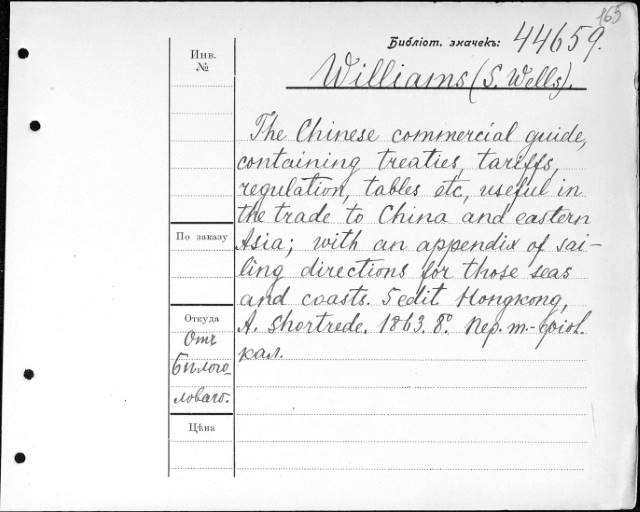 165
Библіот. значекъ: 44659.
Williams (S. Wells).
Инв.
№
The Chinese commercial guide,
containing treaties, tariffs,
regulation, tables etc, useful in
the trade to China and eastern
Asia; with an appendix of sai-
ling directions for those seas
and coasts. 5 edit Hongkong,
A. Shortrede. 1863. 8º. Пер. т.-фіол.
кал.
По заказу
Откуда
Отъ
Бѣлого-
ловаго.
Цѣна